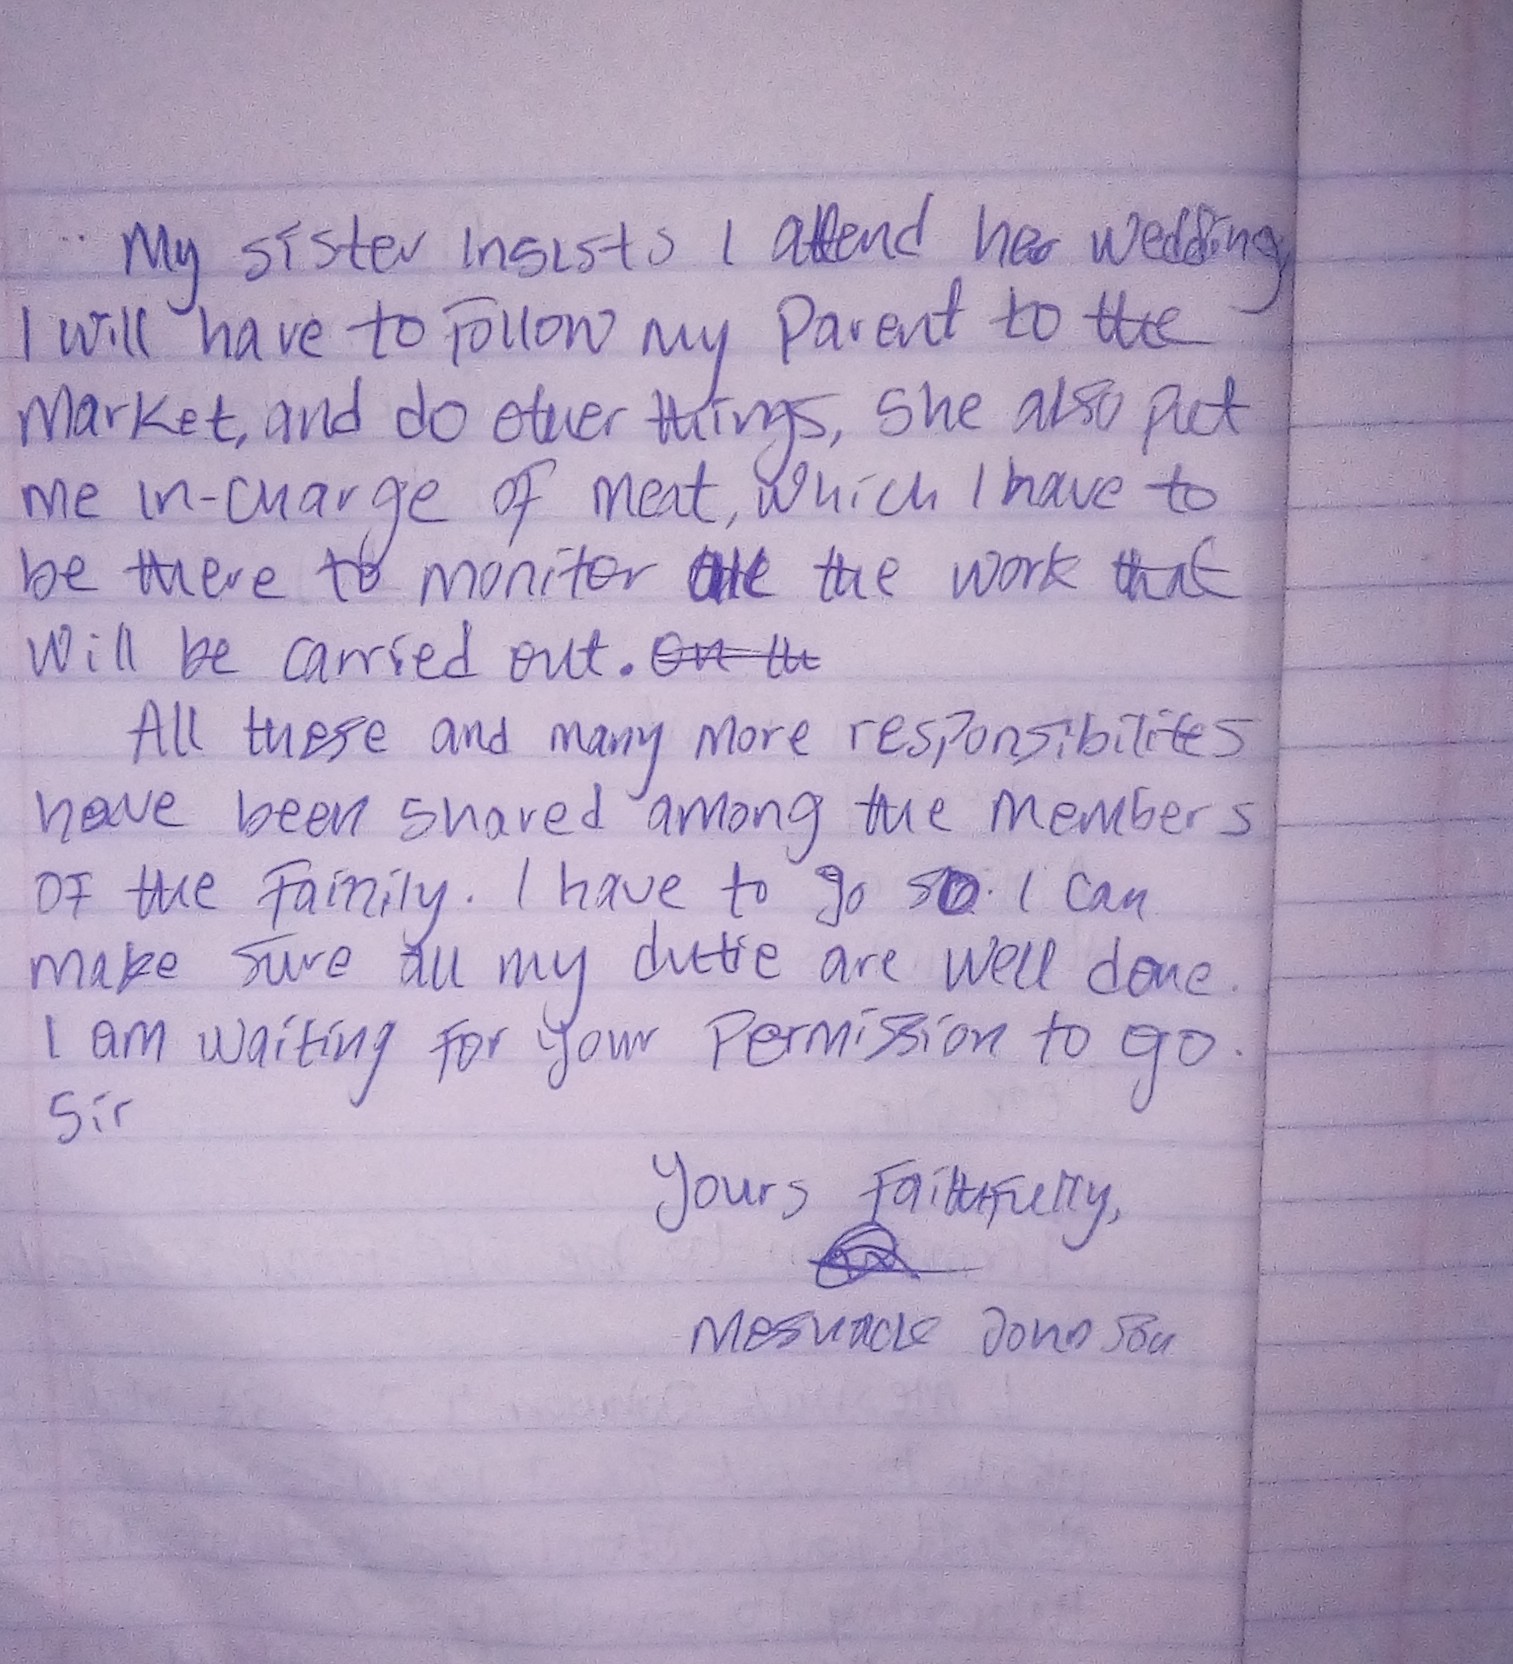 My sister insists I attend her wedding,
I will have to follow my parent to the
market, and do other things, she also put
me in-charge of meat, which I have to
be there to monitor all the work that
will be carried out. On th
All these and many more responsibilites
have been shared among the members
of the family. I have to go so. I can
make sure all my dutie are well done.
I am waiting for your permission to go.
Sir
Yours Faithfully,
Meshack Johnson